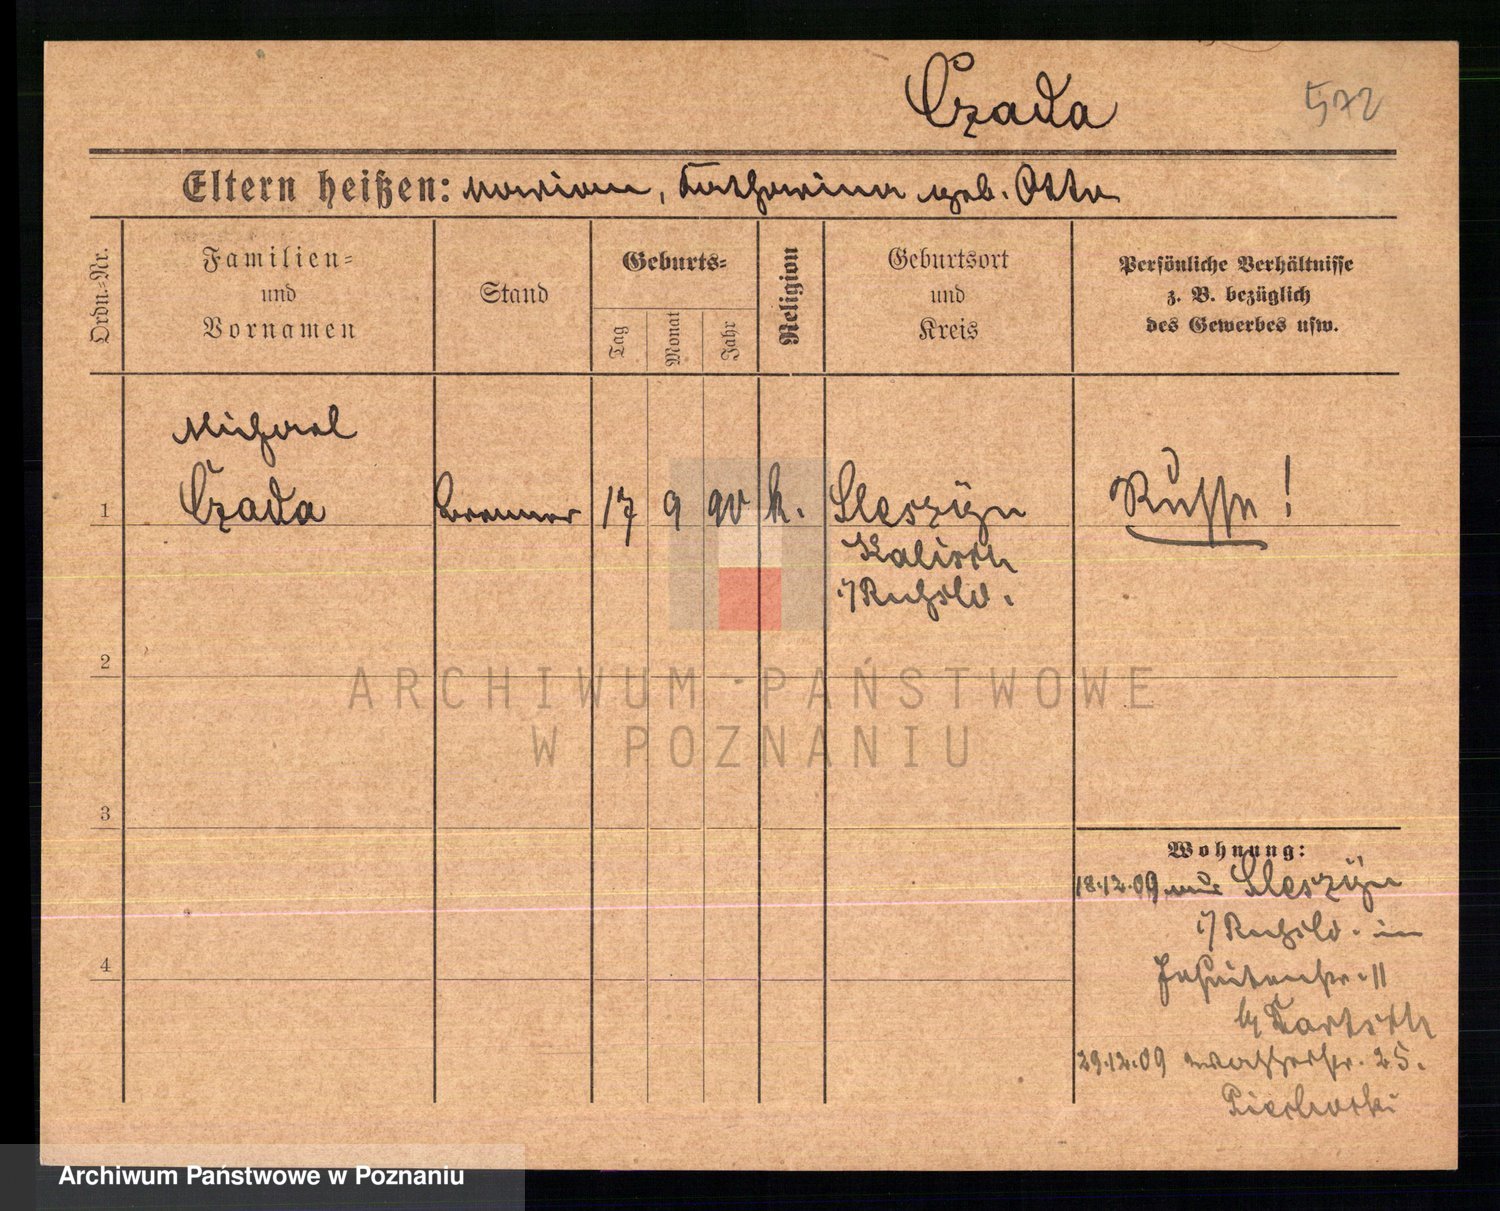 Czada 572
Eltern heißen: Marian, Katharina geb. Otto
Ordn.-Nr.
Familien-
und
Vornamen
Stand
Geburts-
Tag
Monat
Jahr
Religion
Geburtsort
und
Kreis
Persönliche Verhältnisse
z. B. bezüglich
des Gewerbes usw.
Michael
1 Czada Brenner 17 9 90 k. Sleszyn Russe!
Kalisch
i/Rußld.
2
ARCHIWUM PAŃSTWOWE
W POZNANIU
3
Wohnung:
18.12.09 aus Sleszyn
i/Rußld. in
Jesuitenstr. 11
b/
4
29.12.09 Wasserstr. 25.
Archiwum Państwowe w Poznaniu